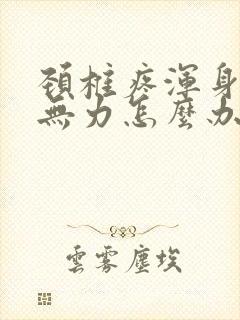 頚椎疼渾身
無力怎麼办
雲霧塵埃